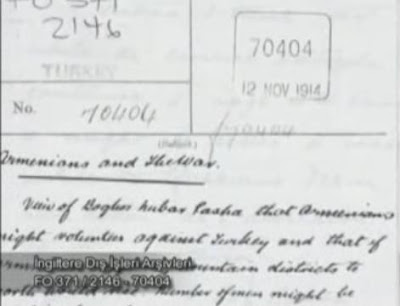 FO 371
2146
TURKEY
70404
12 NOV 1914
No. 70404
70404
Armenians and the War.
View of Boghos Nubar Pasha that Armenians
might volunteer against Turkey and that if
mountain districts to
number of men might be
İngiltere Dış İşleri Arşivleri
FO 371 / 2146 - 70404